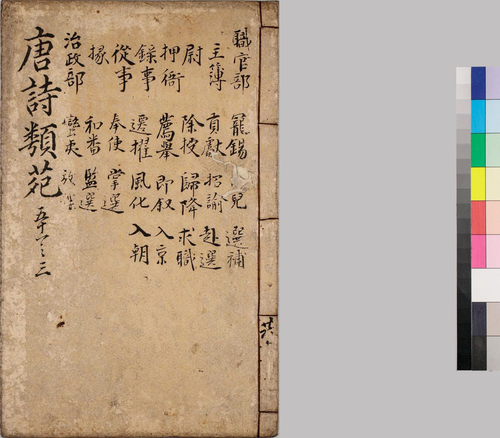 職官部 寵錫 選補
主簿 貢獻 招諭 赴選
尉 除授 歸降 求職
押衙 薦舉 即叙 入京
錄事 遷擢 風化 入朝
從事 奉使 掌選
掾 和番 監選
治政部
唐詩類苑